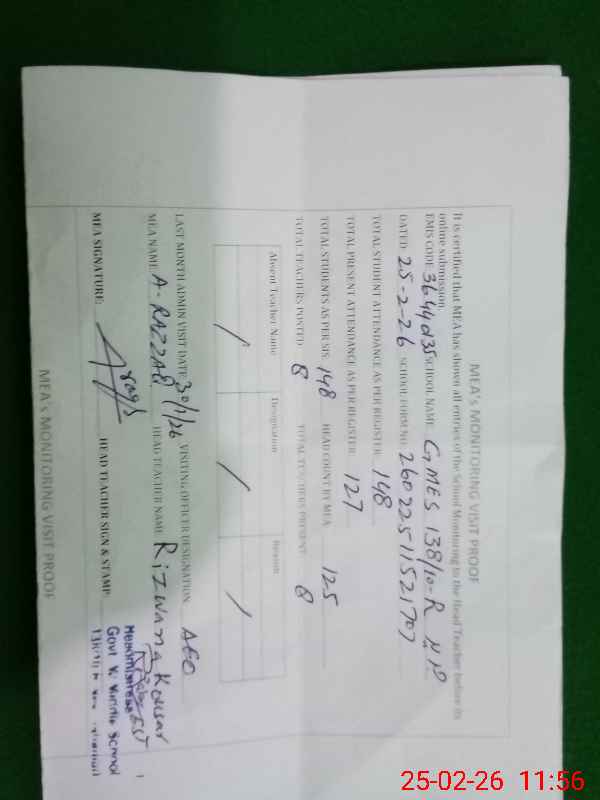 MEA's MONITORING VISIT PROOF
It is certified that MEA has shown all entries of the School Monitoring to the Head Teacher before its
online submission.
EMIS CODE: SCHOOL NAME: GMES 138/10-R
DATED: 25-2-26 SCHOOL FORM NO: 26022511521707
TOTAL STUDENT ATTENDANCE AS PER REGISTER: 148
TOTAL PRESENT ATTENDANCE AS PER REGISTER: 127
TOTAL STUDENTS AS PER SIS: 148 HEAD COUNT BY MEA: 125
TOTAL TEACHERS POSTED: 8 TOTAL TEACHERS PRESENT: 8
Absent Teacher Name Designation Reason
/ / /
LAST MONTH ADMIN VISIT DATE: 30/1/26 VISITING OFFICER DESIGNATION: AEO
MEA NAME: A-RAZZAQ HEAD TEACHER NAME: Rizwana Kousar
MEA SIGNATURE: HEAD TEACHER SIGN & STAMP:
Headmistress
Govt School
MEA's MONITORING VISIT PROOF
25-02-26 11:56